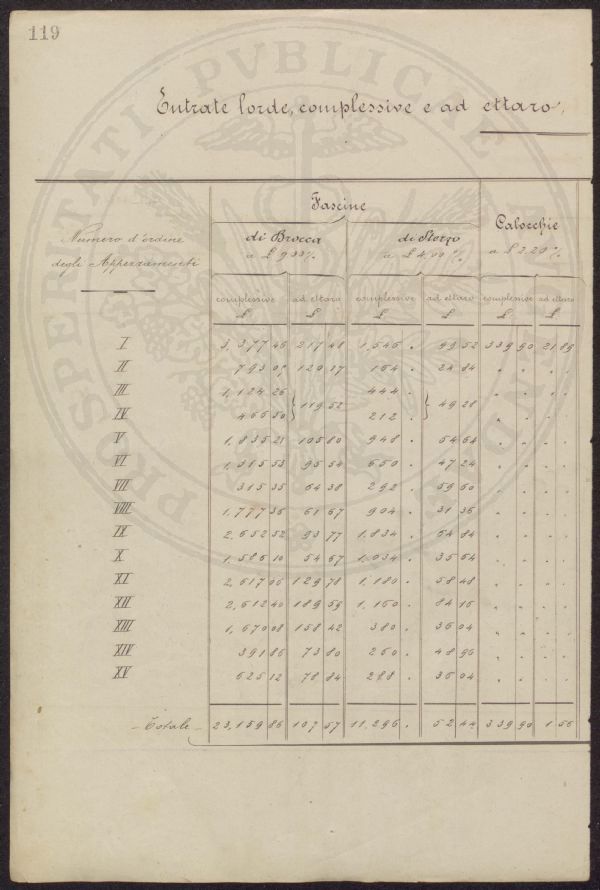 119
PROSPERITATI PVBLICAE
Entrate lorde, complessive e ad ettaro.
Numero d'ordine degli Appezzamenti
Fascine
di Brocca a £ 9,00 %
complessive £
ad ettaro £
a £ 4,00 %
complessive £
ad ettaro £
Calocchie
a £ 2.20 %
complessive £
ad ettaro £
I 3,377 46 217 48 1,546 . 99 52 339 90 21 89
II 793 05 120 17 164 . 24 84 " " " "
III 1,124 26 444 .
IV 466 50 } 119 52 212 . } 49 28
V 1,835 21 105 80 948 . 54 64
VI 1,315 53 95 54 650 . 47 24
VII 315 35 64 38 292 . 59 60
VIII 1,777 36 61 67 904 . 31 36
IX 2,652 52 93 77 1,834 . 64 84
X 1,586 10 54 67 1,034 . 35 64
XI 2,617 06 129 78 1,180 . 58 48
XII 2,612 40 189 59 1,160 . 84 16
XIII 1,670 08 158 42 380 . 36 04
XIV 391 86 73 80 260 . 48 96
XV 625 12 78 84 288 . 36 04
Totale 23,159 86 107 57 11,296 . 52 44 339 90 1 56